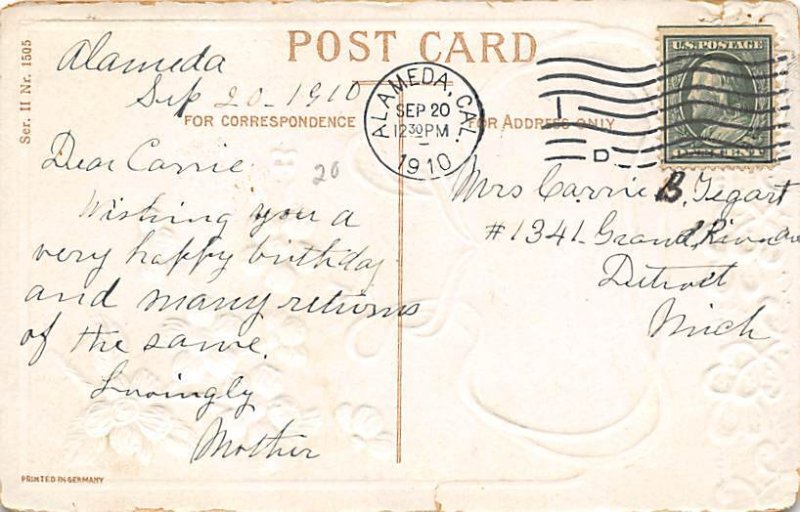 POST CARD
Ser. II Nr. 1505
Alameda
Sep 20 - 1910
FOR CORRESPONDENCE
FOR ADDRESS ONLY
ALAMEDA, CAL.
SEP 20
12 30 PM
1910
D
U.S. POSTAGE
ONE CENT
Dear Carrie
20
Wishing you a
very happy birthday
and many returns
of the same.
Lovingly
Mother
Mrs Carrie B. Tegart
#1341 Grand River av
Detroit
Mich
PRINTED IN GERMANY